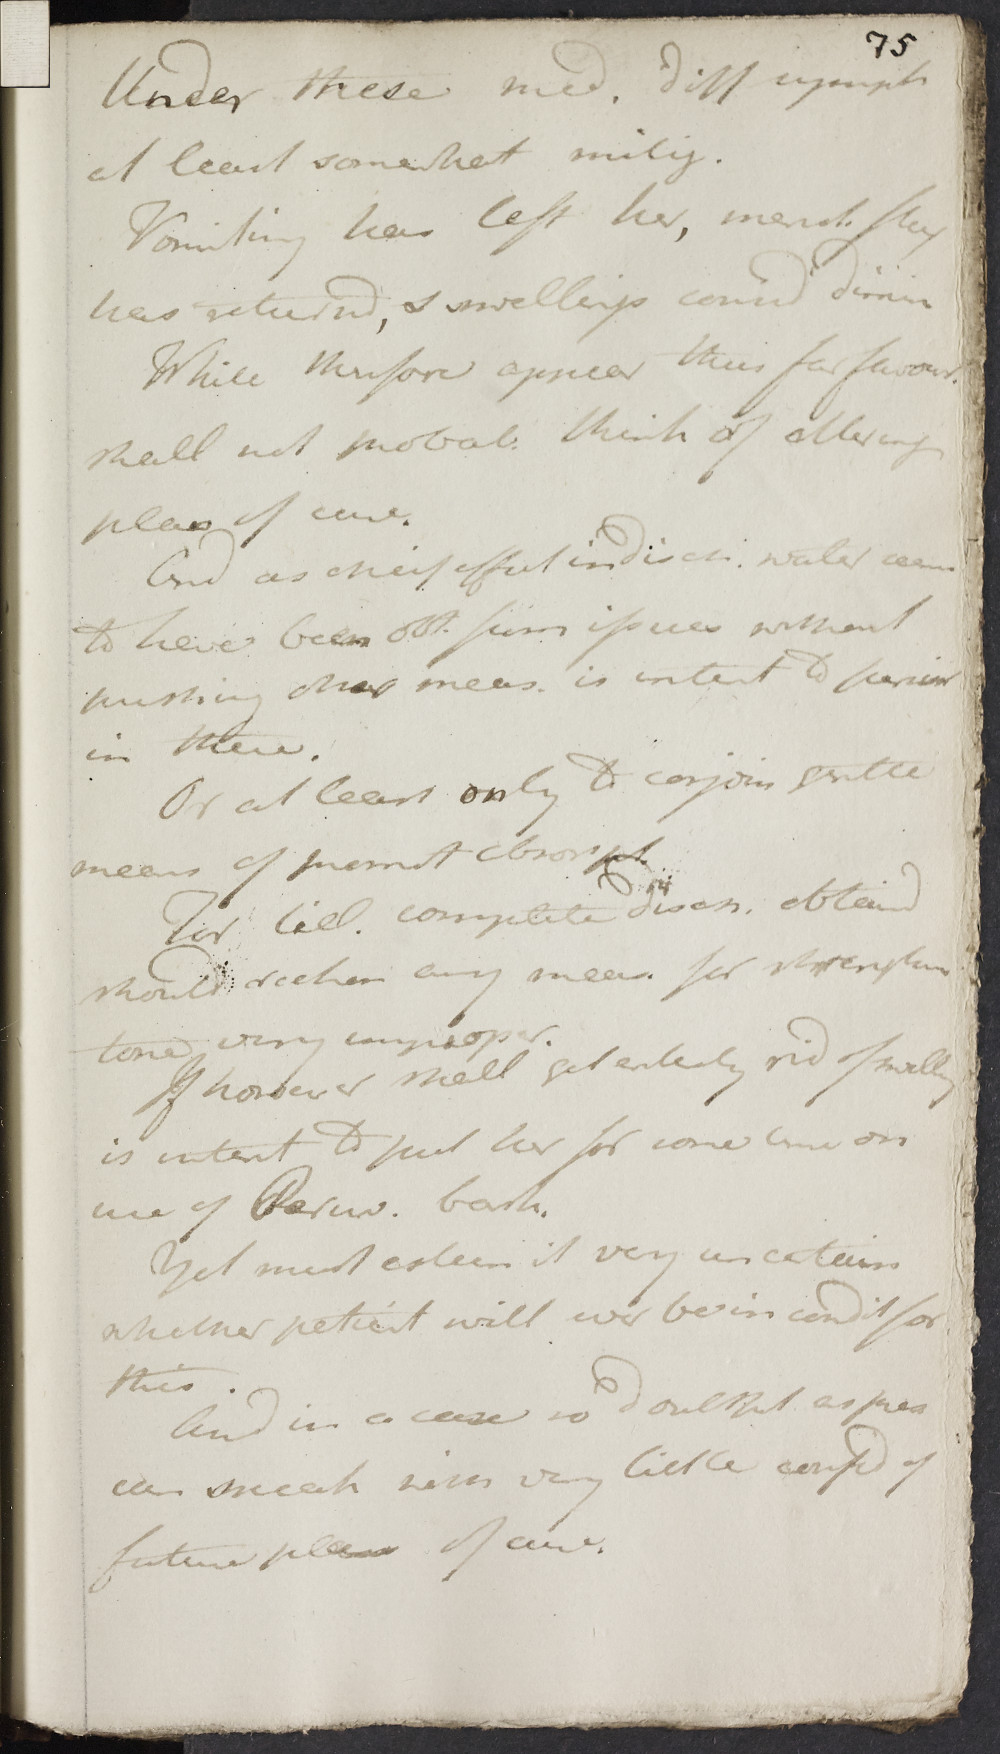 75
Under these med. diff symptr
at least somewhat mitig.
Vomiting has left her, menst. flux
has returnd, & swellings consid dimin
While therefore appear thus far favour.
shall not probab. think of altering
plan of cure.
And as chief effect in disch. water seems
to have been obt. from issues without
pushing other meas. is intent to persist
in these.
Or at least only to conjoin gentle
means of promot absorpt.
For till complete disch. obtaind
should reckon any meas. for strengthen
tone very improper.
If however shall get entirely rid of swelling
is intent to put her for some time on
use of Peruv. bark.
Yet must esteem it very uncertain
whether patient will ever be in condit for
this.
And in a case so doubtful as pres
can speak with very little confid of
future plan of cure.